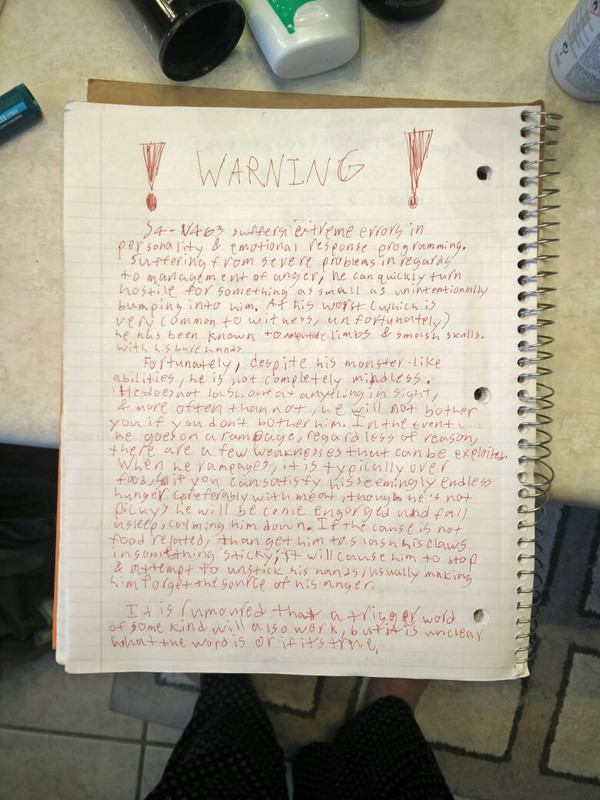 ! WARNING !
S4-V463 suffers extreme errors in
personality & emotional response programming.
Suffering from severe problems in regards
to management of anger, he can quickly turn
hostile for something as small as unintentionally
bumping into him. At his worst (which is
very common to witness, unfortunately)
he has been known to amputate limbs & smash skulls.
with his bare hands
Fortunately, despite his monster-like
abilities, he is not completely mindless.
He does not lash out at anything in sight,
& more often than not, he will not bother
you if you don't bother him. In the event
he goes on a rampage, regardless of reason,
there are a few weaknesses that can be exploited.
When he rampages, it is typically over
food, so if you can satisfy his seemingly endless
hunger (preferably with meat, though he's not
picky) he will become engorged and fall
asleep, calming him down. If the cause is not
food related, than get him to slash his claws
in something sticky; it will cause him to stop
& attempt to unstick his hands, usually making
him forget the source of his anger.
It is rumoured that a trigger word
of some kind will also work, but it is unclear
what the word is or if its true.